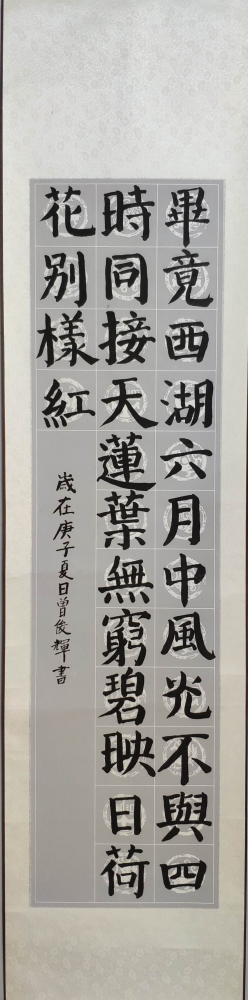 畢竟西湖六月中風光不與四
時同接天蓮葉無窮碧映日荷
花别樣紅
歲在庚子夏日曾俊輝書